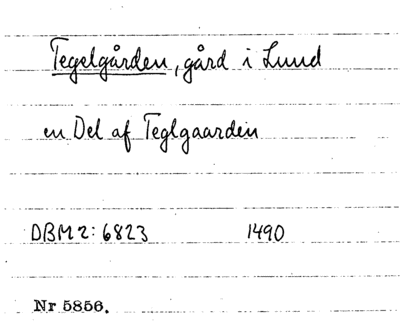 Tegelgården, gård i Lund
en Del af Teglgaarden
DBM 2: 6823 1490
Nr 5856.